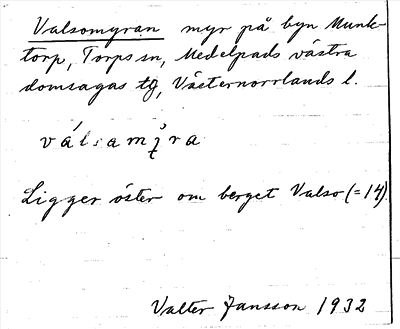 Valsomyran myr på byn Munk-
torp, Torps sn, Medelpads västra
domsagas tg, Västernorrlands l.
Ligger öster om berget Valso (=14).
Valter Jansson 1932